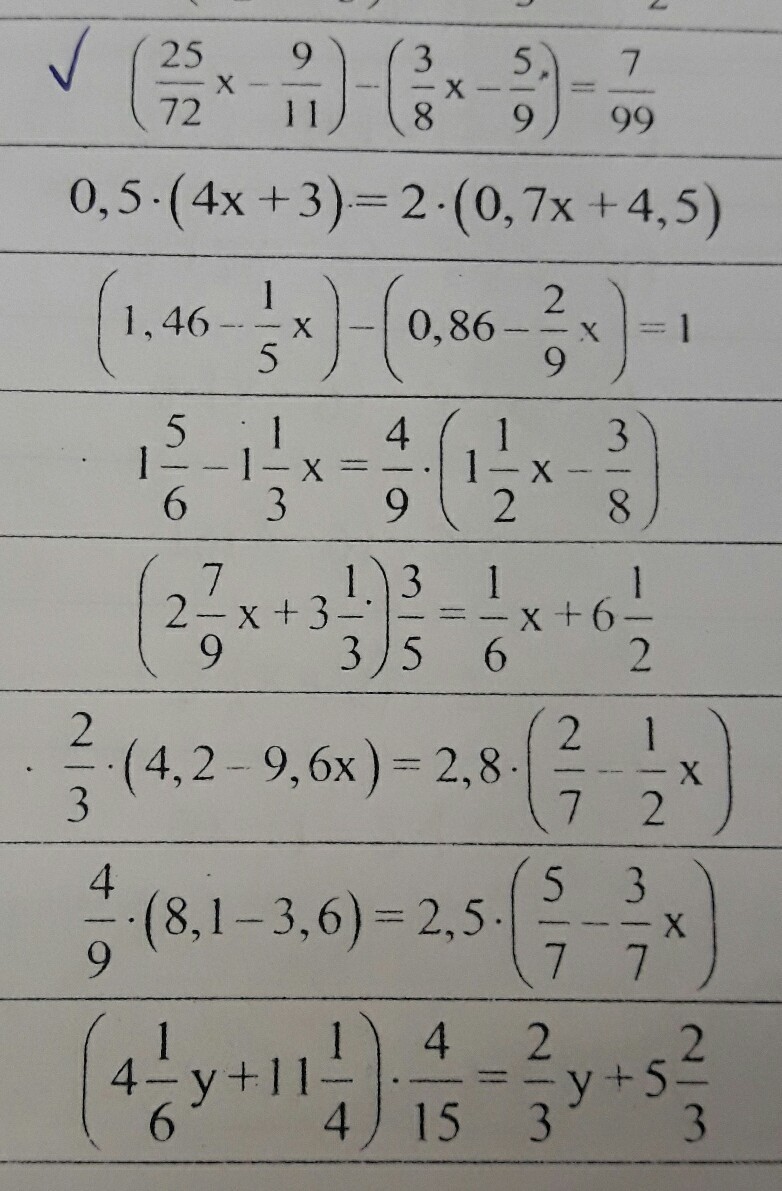 ✓ (25/72 x − 9/11) − (3/8 x − 5/9) = 7/99
0,5·(4x + 3) = 2·(0,7x + 4,5)
(1,46 − 1/5 x) − (0,86 − 2/9 x) = 1
1 5/6 − 1 1/3 x = 4/9 · (1 1/2 x − 3/8)
(2 7/9 x + 3 1/3) 3/5 = 1/6 x + 6 1/2
2/3 · (4,2 − 9,6x) = 2,8 · (2/7 − 1/2 x)
4/9 · (8,1 − 3,6) = 2,5 · (5/7 − 3/7 x)
(4 1/6 y + 11 1/4) · 4/15 = 2/3 y + 5 2/3